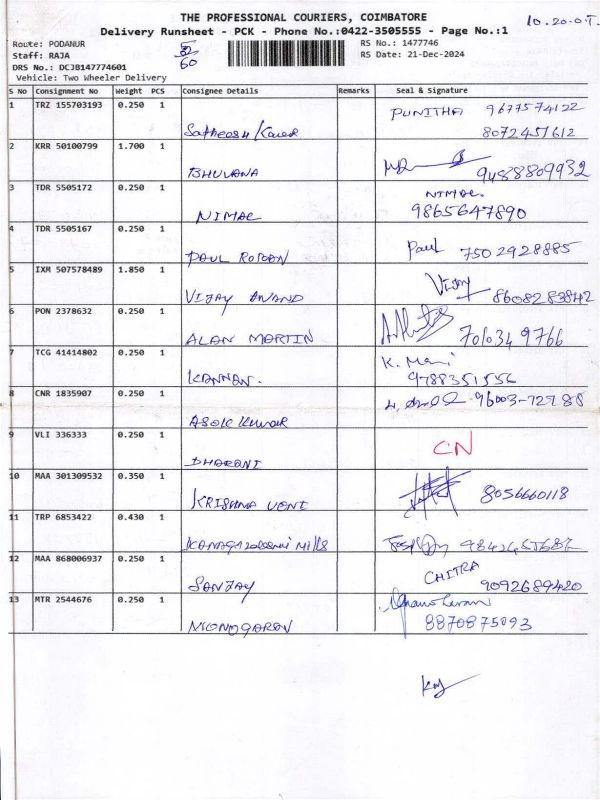 THE PROFESSIONAL COURIERS, COIMBATORE
10.20.0.T.
Delivery Runsheet - PCK - Phone No.:0422-3505555 - Page No.:1
Route: PODANUR
RS No.: 1477746
Staff: RAJA
RS Date: 21-Dec-2024
DRS No.: DCJB147774601
60
Vehicle: Two Wheeler Delivery
S No Consignment No Weight PCS Consignee Details Remarks Seal & Signature
1 TRZ 155703193 0.250 1 PUNITHA 9677574122
8072451612
2 KRR 50100799 1.700 1 BHUVANA 9488809932
3 TDR 5505172 0.250 1 NIMAL NIMAL.
9865647890
4 TDR 5505167 0.250 1 PAUL ROSOAN Paul 7502928885
5 IXM 507578489 1.850 1 VIJAY ANAND Vijay 8608283842
6 PON 2378632 0.250 1 ALAN MARTIN 7010349766
7 TCG 41414802 0.250 1 KANNAN. K. Mani
9788351556
8 CNR 1835907 0.250 1 ASOK KUMAR 96003-72788
9 VLI 336333 0.250 1 DHARANI CN
10 MAA 301309532 0.350 1 KRISHNA VENI 8056660118
11 TRP 6853422 0.430 1 Mills
12 MAA 868006937 0.250 1 SANJAY CHITRA
9092689420
13 MTR 2544676 0.250 1 MONOGARAN
8870875093